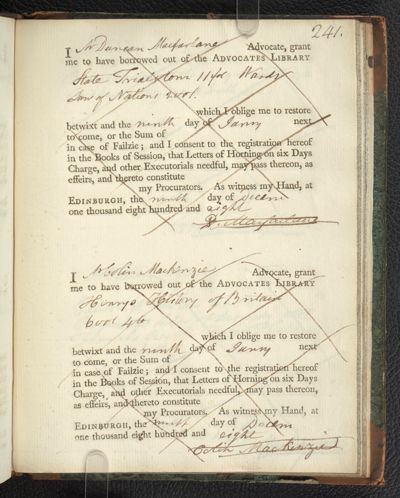 241.
I Mr Duncan Macfarlane Advocate, grant
me to have borrowed out of the ADVOCATES LIBRARY
State Trials tom 11th Wards
Law of Nations 2 vol.
which I oblige me to restore
betwixt and the ninth day of Janry next
to come, or the Sum of
in case of Failzie; and I consent to the registration hereof
in the Books of Session, that Letters of Horning on six Days
Charge, and other Executorials needful, may pass thereon, as
effeirs, and thereto constitute
my Procurators. As witness my Hand, at
EDINBURGH, the ninth day of Decem
one thousand eight hundred and eight
D. Macfarlane
I Mr Colin Mackenzie Advocate, grant
me to have borrowed out of the ADVOCATES LIBRARY
Henrys History of Britain
6 vol 4to
which I oblige me to restore
betwixt and the ninth day of Janry next
to come, or the Sum of
in case of Failzie; and I consent to the registration hereof
in the Books of Session, that Letters of Horning on six Days
Charge, and other Executorials needful, may pass thereon,
as effeirs, and thereto constitute
my Procurators. As witness my Hand, at
EDINBURGH, the ninth day of Decem
one thousand eight hundred and eight
Colin Mackenzie